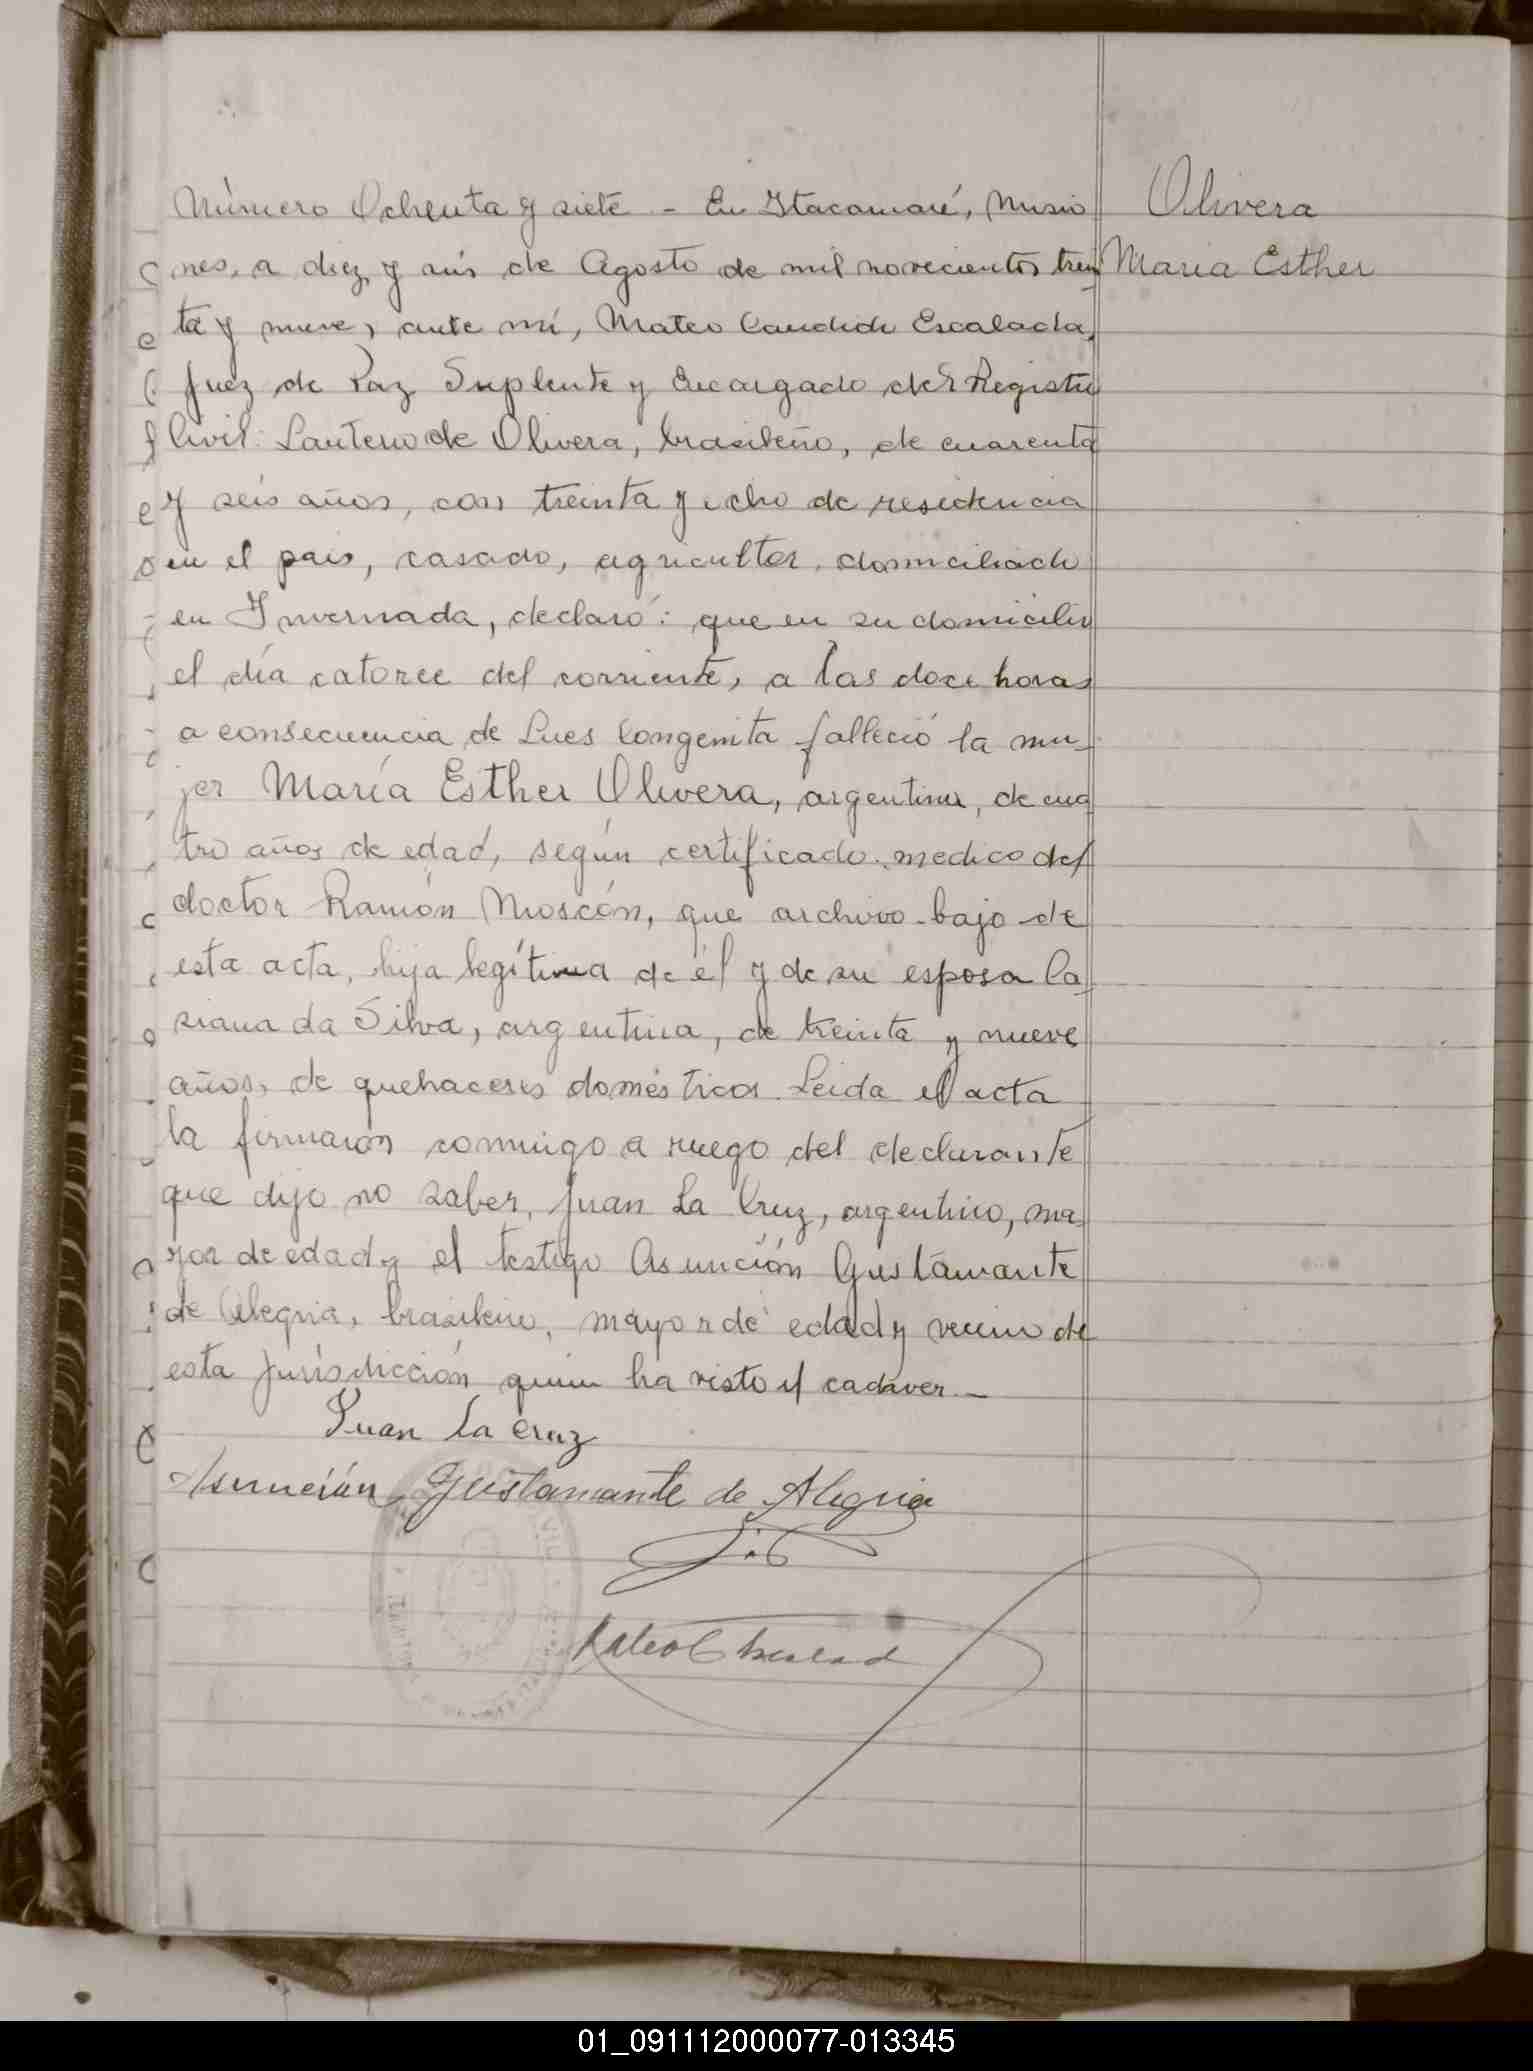 Número Ochenta y siete - En Itacamaré, Misio
nes, a diez y seis de Agosto de mil novecientos trein
ta y nueve, ante mí, Mateo Candido Escalada,
Juez de Paz Suplente y Encargado del Registro
Civil: Lauterio de Olivera, brasileño, de cuarenta
y seis años, con treinta y ocho de residencia
en el pais, casado, agricultor, domiciliado
en Invernada, declaró: que en su domicilio
el día catorce del corriente, a las doce horas
a consecuencia de Lues Congenita falleció la mu-
jer María Esther Olivera, argentina, de cua
tro años de edad, según certificado medico del
doctor Ramón Moscón, que archivo bajo de
esta acta, hija legítima de él y de su esposa Ca
siana da Silva, argentina, de treinta y nueve
años, de quehaceres domésticos. Leida el acta
la firmaron conmigo a ruego del declarante
que dijo no saber, Juan La Cruz, argentino, ma
yor de edad y el testigo Asunción Gustamante
de Alegria, brasileño, mayor de edad y vecino de
esta jurisdicción quien ha visto el cadaver. -
Juan la cruz
Asunción Gustamante de Alegria
Mateo C Escalad
Olivera
Maria Esther
01_091112000077-013345